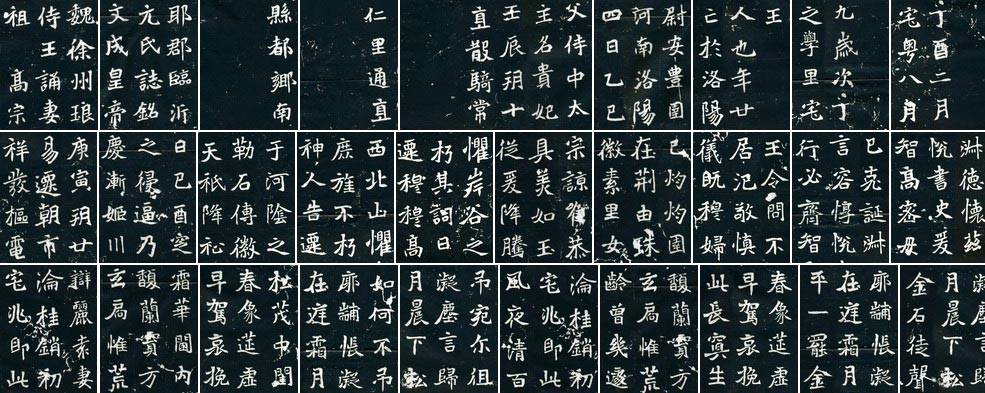 魏徐州琅
侍王誦妻
祖高宗
耶郡臨沂
元氏誌銘
文成皇帝
縣都鄉南
仁里通直
直散騎常
父侍中太
主名貴妃
壬辰玥十
尉安豊圉
河南洛陽
四日乙巳
王
人也年廿
亡於洛陽
九歲次丁
之學里宅
丁酉二月
宅粤八月
庚寅玥廿
易遷朝市
祥發樞電
日己酉窆
之侵逼乃
慶漸姬川
于河陰之
勒石傳徽
天祇降祉
西北山懼
庶旌不朽
神人告遷
懼岸谷之
朽其詞曰
遷穆穆高
宗諒惟恭
具美如玉
従爰降騰
已灼灼圉
在荆由蛛
徽素里女
王令問不
居氾敬慎
儀既穆婦
已克誕淋
言容惇恍
行必齊智
淋德懷茲
恍書史爰
智高密毋
辯麗袁妻
淪桂銷初
宅兆即此
霜華閫內
馥蘭實方
玄扃惟荒
松茂中閨
春象莚虛
早駕哀挽
如何不弔
耶黼帳凝
在庭霜月
弔宛尔徂
凝塵言歸
月晨下松
淪桂銷初
宅兆即此
風夜清百
馥蘭實方
玄扃惟荒
齡曾幾邊
春象莚虛
早駕哀挽
此長冥生
耶黼帳凝
在庭霜月
平一罷金
凝塵言歸
月晨下松
金石徒聲